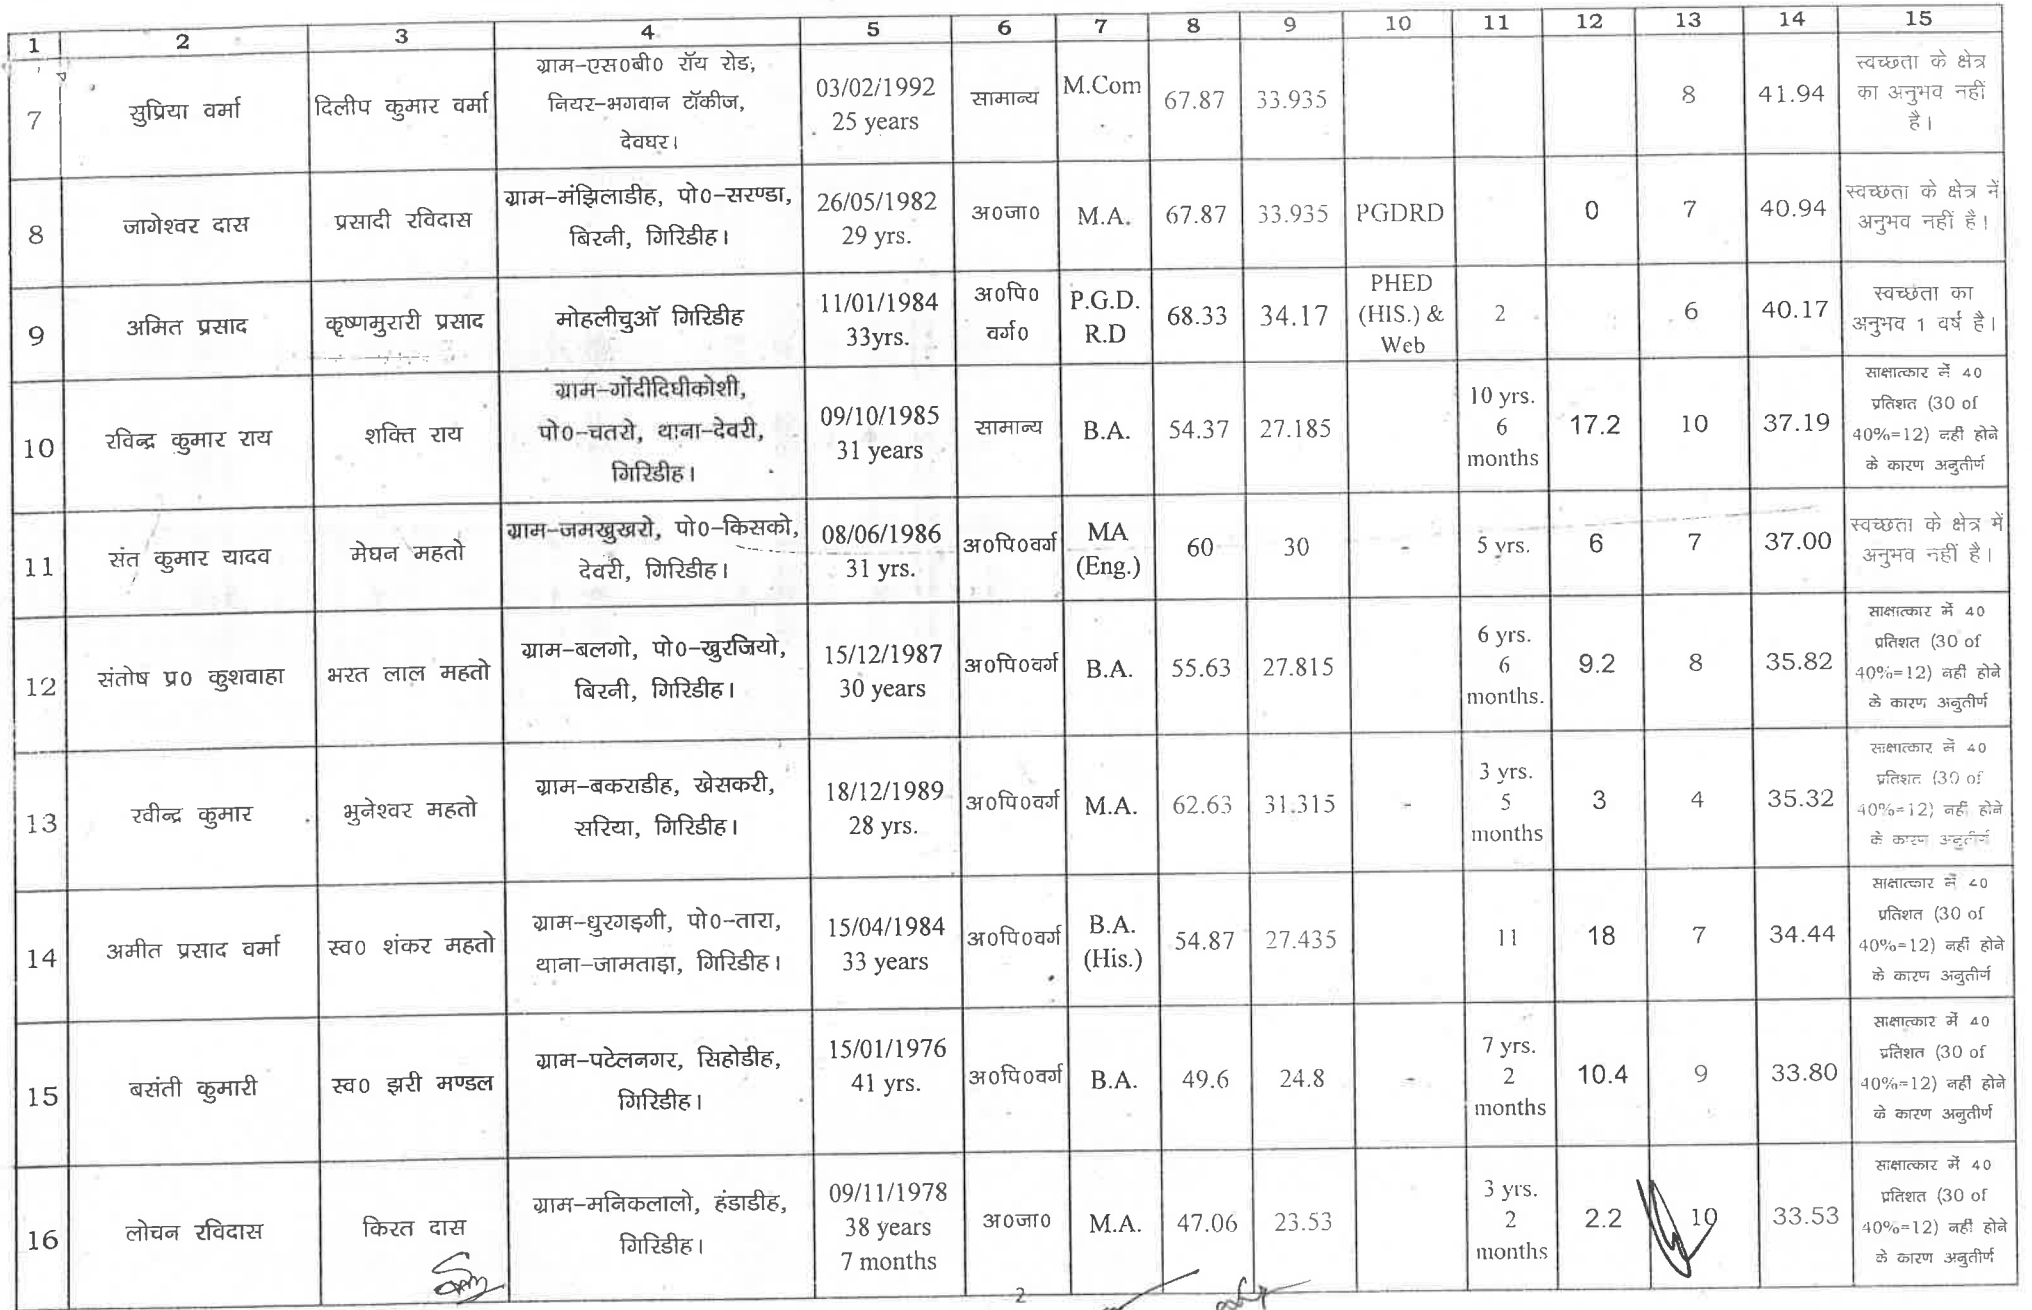 1 2 3 4 5 6 7 8 9 10 11 12 13 14 15
7 सुप्रिया वर्मा दिलीप कुमार वर्मा ग्राम-एस०बी० रॉय रोड, नियर-भगवान टॉकीज, देवघर। 03/02/1992 25 years सामान्य M.Com 67.87 33.935 8 41.94 स्वच्छता के क्षेत्र का अनुभव नहीं है।
8 जागेश्वर दास प्रसादी रविदास ग्राम-मंझिलाडीह, पो०-सरण्डा, बिरनी, गिरिडीह। 26/05/1982 29 yrs. अ०जा० M.A. 67.87 33.935 PGDRD 0 7 40.94 स्वच्छता के क्षेत्र में अनुभव नहीं है।
9 अमित प्रसाद कृष्णमुरारी प्रसाद मोहलीचुऑ गिरिडीह 11/01/1984 33yrs. अ०पि० वर्ग० P.G.D. R.D 68.33 34.17 PHED (HIS.) & Web 2 6 40.17 स्वच्छता का अनुभव 1 वर्ष है।
10 रविन्द्र कुमार राय शक्ति राय ग्राम-गोंदीदिघीकोशी, पो०-चतरो, थाना-देवरी, गिरिडीह। 09/10/1985 31 years सामान्य B.A. 54.37 27.185 10 yrs. 6 months 17.2 10 37.19 साक्षात्कार में 40 प्रतिशत (30 of 40%=12) नहीं होने के कारण अनुतीर्ण
11 संत कुमार यादव मेघन महतो ग्राम-जमखुखरो, पो०-किसको, देवरी, गिरिडीह। 08/06/1986 31 yrs. अ०पि०वर्ग MA (Eng.) 60 30 - 5 yrs. 6 7 37.00 स्वच्छता के क्षेत्र में अनुभव नहीं है।
12 संतोष प्र० कुशवाहा भरत लाल महतो ग्राम-बलगो, पो०-खुरजियो, बिरनी, गिरिडीह। 15/12/1987 30 years अ०पि०वर्ग B.A. 55.63 27.815 6 yrs. 6 months. 9.2 8 35.82 साक्षात्कार में 40 प्रतिशत (30 of 40%=12) नहीं होने के कारण अनुतीर्ण
13 रवीन्द्र कुमार भुनेश्वर महतो ग्राम-बकराडीह, खेसकरी, सरिया, गिरिडीह। 18/12/1989 28 yrs. अ०पि०वर्ग M.A. 62.63 31.315 - 3 yrs. 5 months 3 4 35.32 साक्षात्कार में 40 प्रतिशत (30 of 40%=12) नहीं होने के कारण अनुतीर्ण
14 अमीत प्रसाद वर्मा स्व० शंकर महतो ग्राम-धुरगड़गी, पो०-तारा, थाना-जामताड़ा, गिरिडीह। 15/04/1984 33 years अ०पि०वर्ग B.A. (His.) 54.87 27.435 11 18 7 34.44 साक्षात्कार में 40 प्रतिशत (30 of 40%=12) नहीं होने के कारण अनुतीर्ण
15 बसंती कुमारी स्व० झरी मण्डल ग्राम-पटेलनगर, सिहोडीह, गिरिडीह। 15/01/1976 41 yrs. अ०पि०वर्ग B.A. 49.6 24.8 - 7 yrs. 2 months 10.4 9 33.80 साक्षात्कार में 40 प्रतिशत (30 of 40%=12) नहीं होने के कारण अनुतीर्ण
16 लोचन रविदास किरत दास ग्राम-मनिकलालो, हंडाडीह, गिरिडीह। 09/11/1978 38 years 7 months अ०जा० M.A. 47.06 23.53 3 yrs. 2 months 2.2 10 33.53 साक्षात्कार में 40 प्रतिशत (30 of 40%=12) नहीं होने के कारण अनुतीर्ण
2